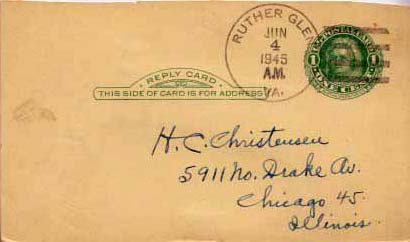 RUTHER GLEN
JUN
4
1945
A.M.
VA.
U.S. POSTAL CARD
1 1
ONE CENT
REPLY CARD
THIS SIDE OF CARD IS FOR ADDRESS
H. C. Christensen
5911 No. Drake Av.
Chicago 45.
Illinois.